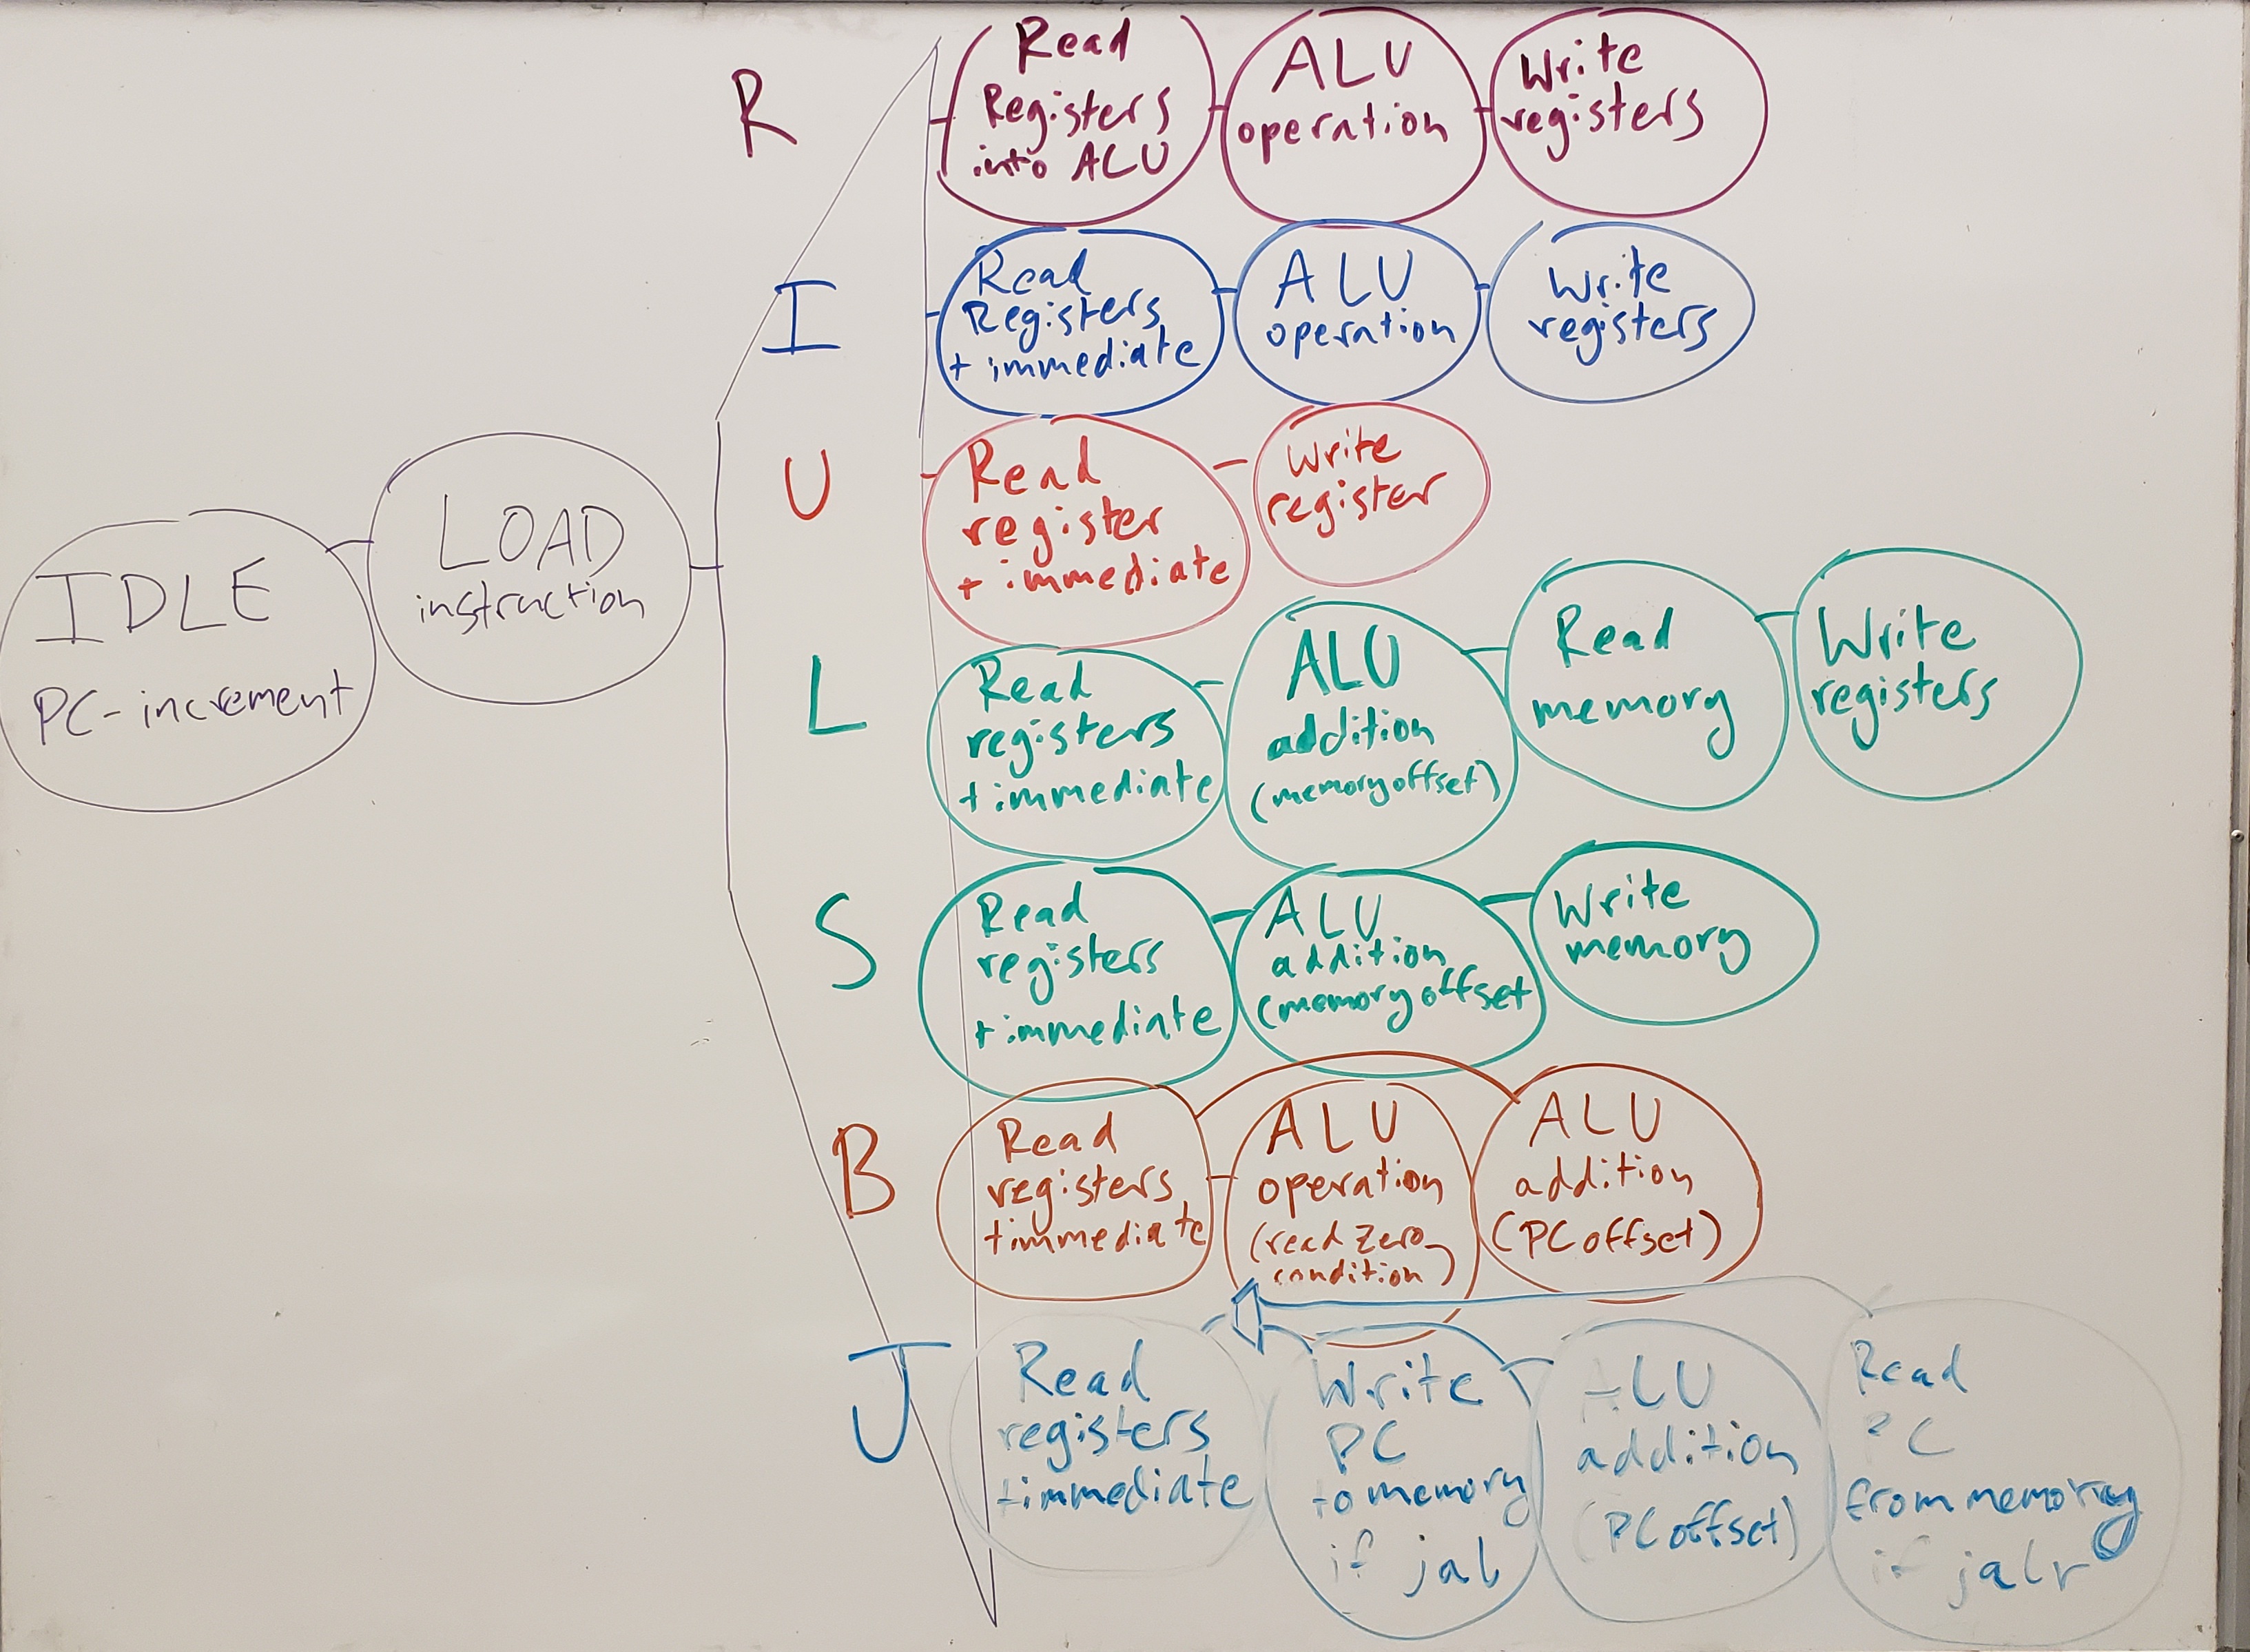 IDLE
PC-increment
LOAD
instruction
R
Read
Registers
into ALU
ALU
operation
Write
registers
I
Read
Registers
+ immediate
ALU
operation
Write
registers
U
Read
register
+ immediate
Write
register
L
Read
registers
+ immediate
ALU
addition
(memory offset)
Read
memory
Write
registers
S
Read
registers
+ immediate
ALU
addition
(memory offset
Write
memory
B
Read
registers
+ immediate
ALU
operation
(read zero
condition)
ALU
addition
(PC offset)
J
Read
registers
+ immediate
Write
PC
to memory
if jal
ALU
addition
(PC offset)
Read
PC
from memory
if jalr